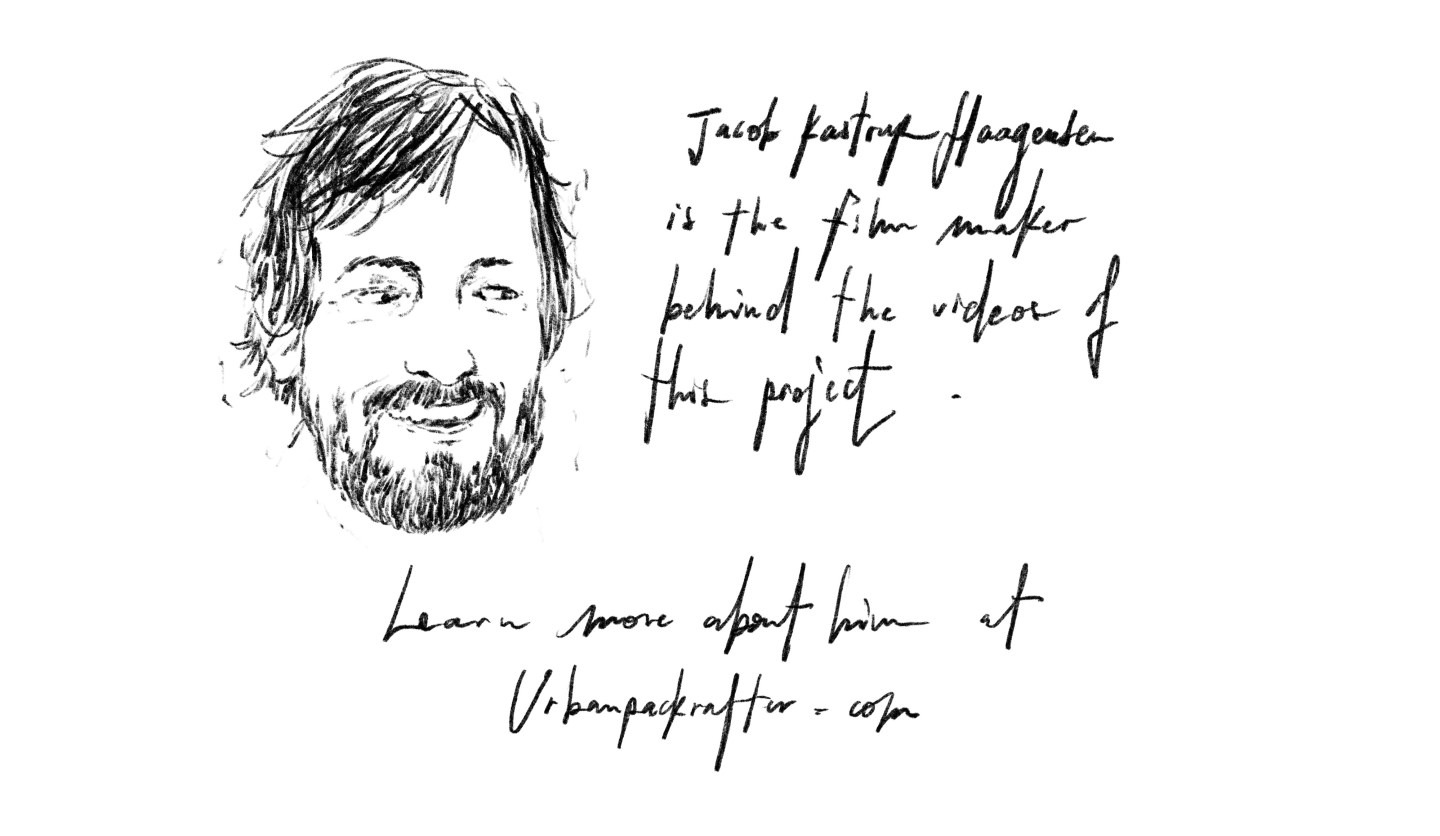 Jacob Kastrup Haagensen
is the film maker
behind the videos of
this project .
Learn more about him at
Urbanpackrafter.com